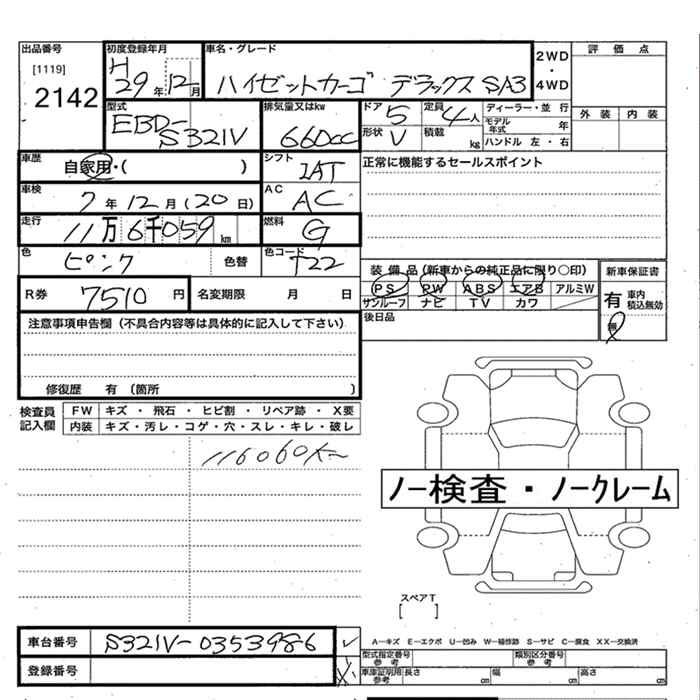 出品番号
[1119]
2142
初度登録年月
H 29 年 12 月
車名・グレード
ハイゼットカーゴ デラックス SA3
2WD
・
4WD
評価点
外装 内装
型式
EBD-
S321V
排気量又はkw
660cc
ドア 5 定員 4 人
形状 V 積載 kg
ディーラー・並行
モデル年式 年
ハンドル 左・右
車歴 自家用・( )
シフト IAT
正常に機能するセールスポイント
車検 7 年 12 月 (20 日)
AC AC
走行 11 万 6 千 059 km
燃料 G
色 ピンク 色替
色コード T22
装備品(新車からの純正品に限り○印)
PS PW ABS エアB アルミW
サンルーフ ナビ TV カワ
新車保証書
有 車内積込無効
無
R券 7510 円 名変期限 月 日
後日品
注意事項申告欄(不具合内容等は具体的に記入して下さい)
修復歴 有 (箇所 )
検査員記入欄
FW キズ・飛石・ヒビ割・リペア跡・X要
内装 キズ・汚レ・コゲ・穴・スレ・キレ・破レ
116060K
ノー検査・ノークレーム
スペアT
[ ]
車台番号 S321V-0353986
登録番号
A−キズ E−エクボ U−凹み W−補修跡 S−サビ C−腐食 XX−交換済
型式指定番号 参考 類別区分番号 参考
車庫証明用 参考 長さ cm 幅 cm 高さ cm